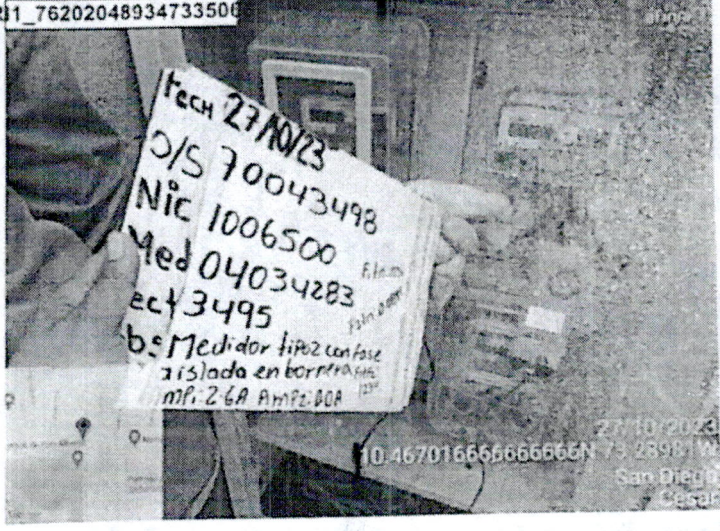 31_7620204893473350
fech 27/10/23
O/S 70043498
Nic 1006500
Med 04034283
ect 3495
bs Medidor tipo2 con fase
aislada en bornera
27/10/2023
10.467016666666666N 73.28981W
San Diego
Cesar